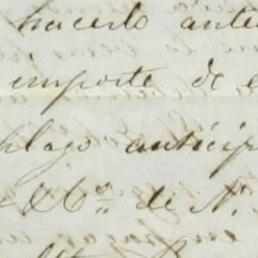 hacerlo ante
importe de e
plazo anticip
& Cª de N.